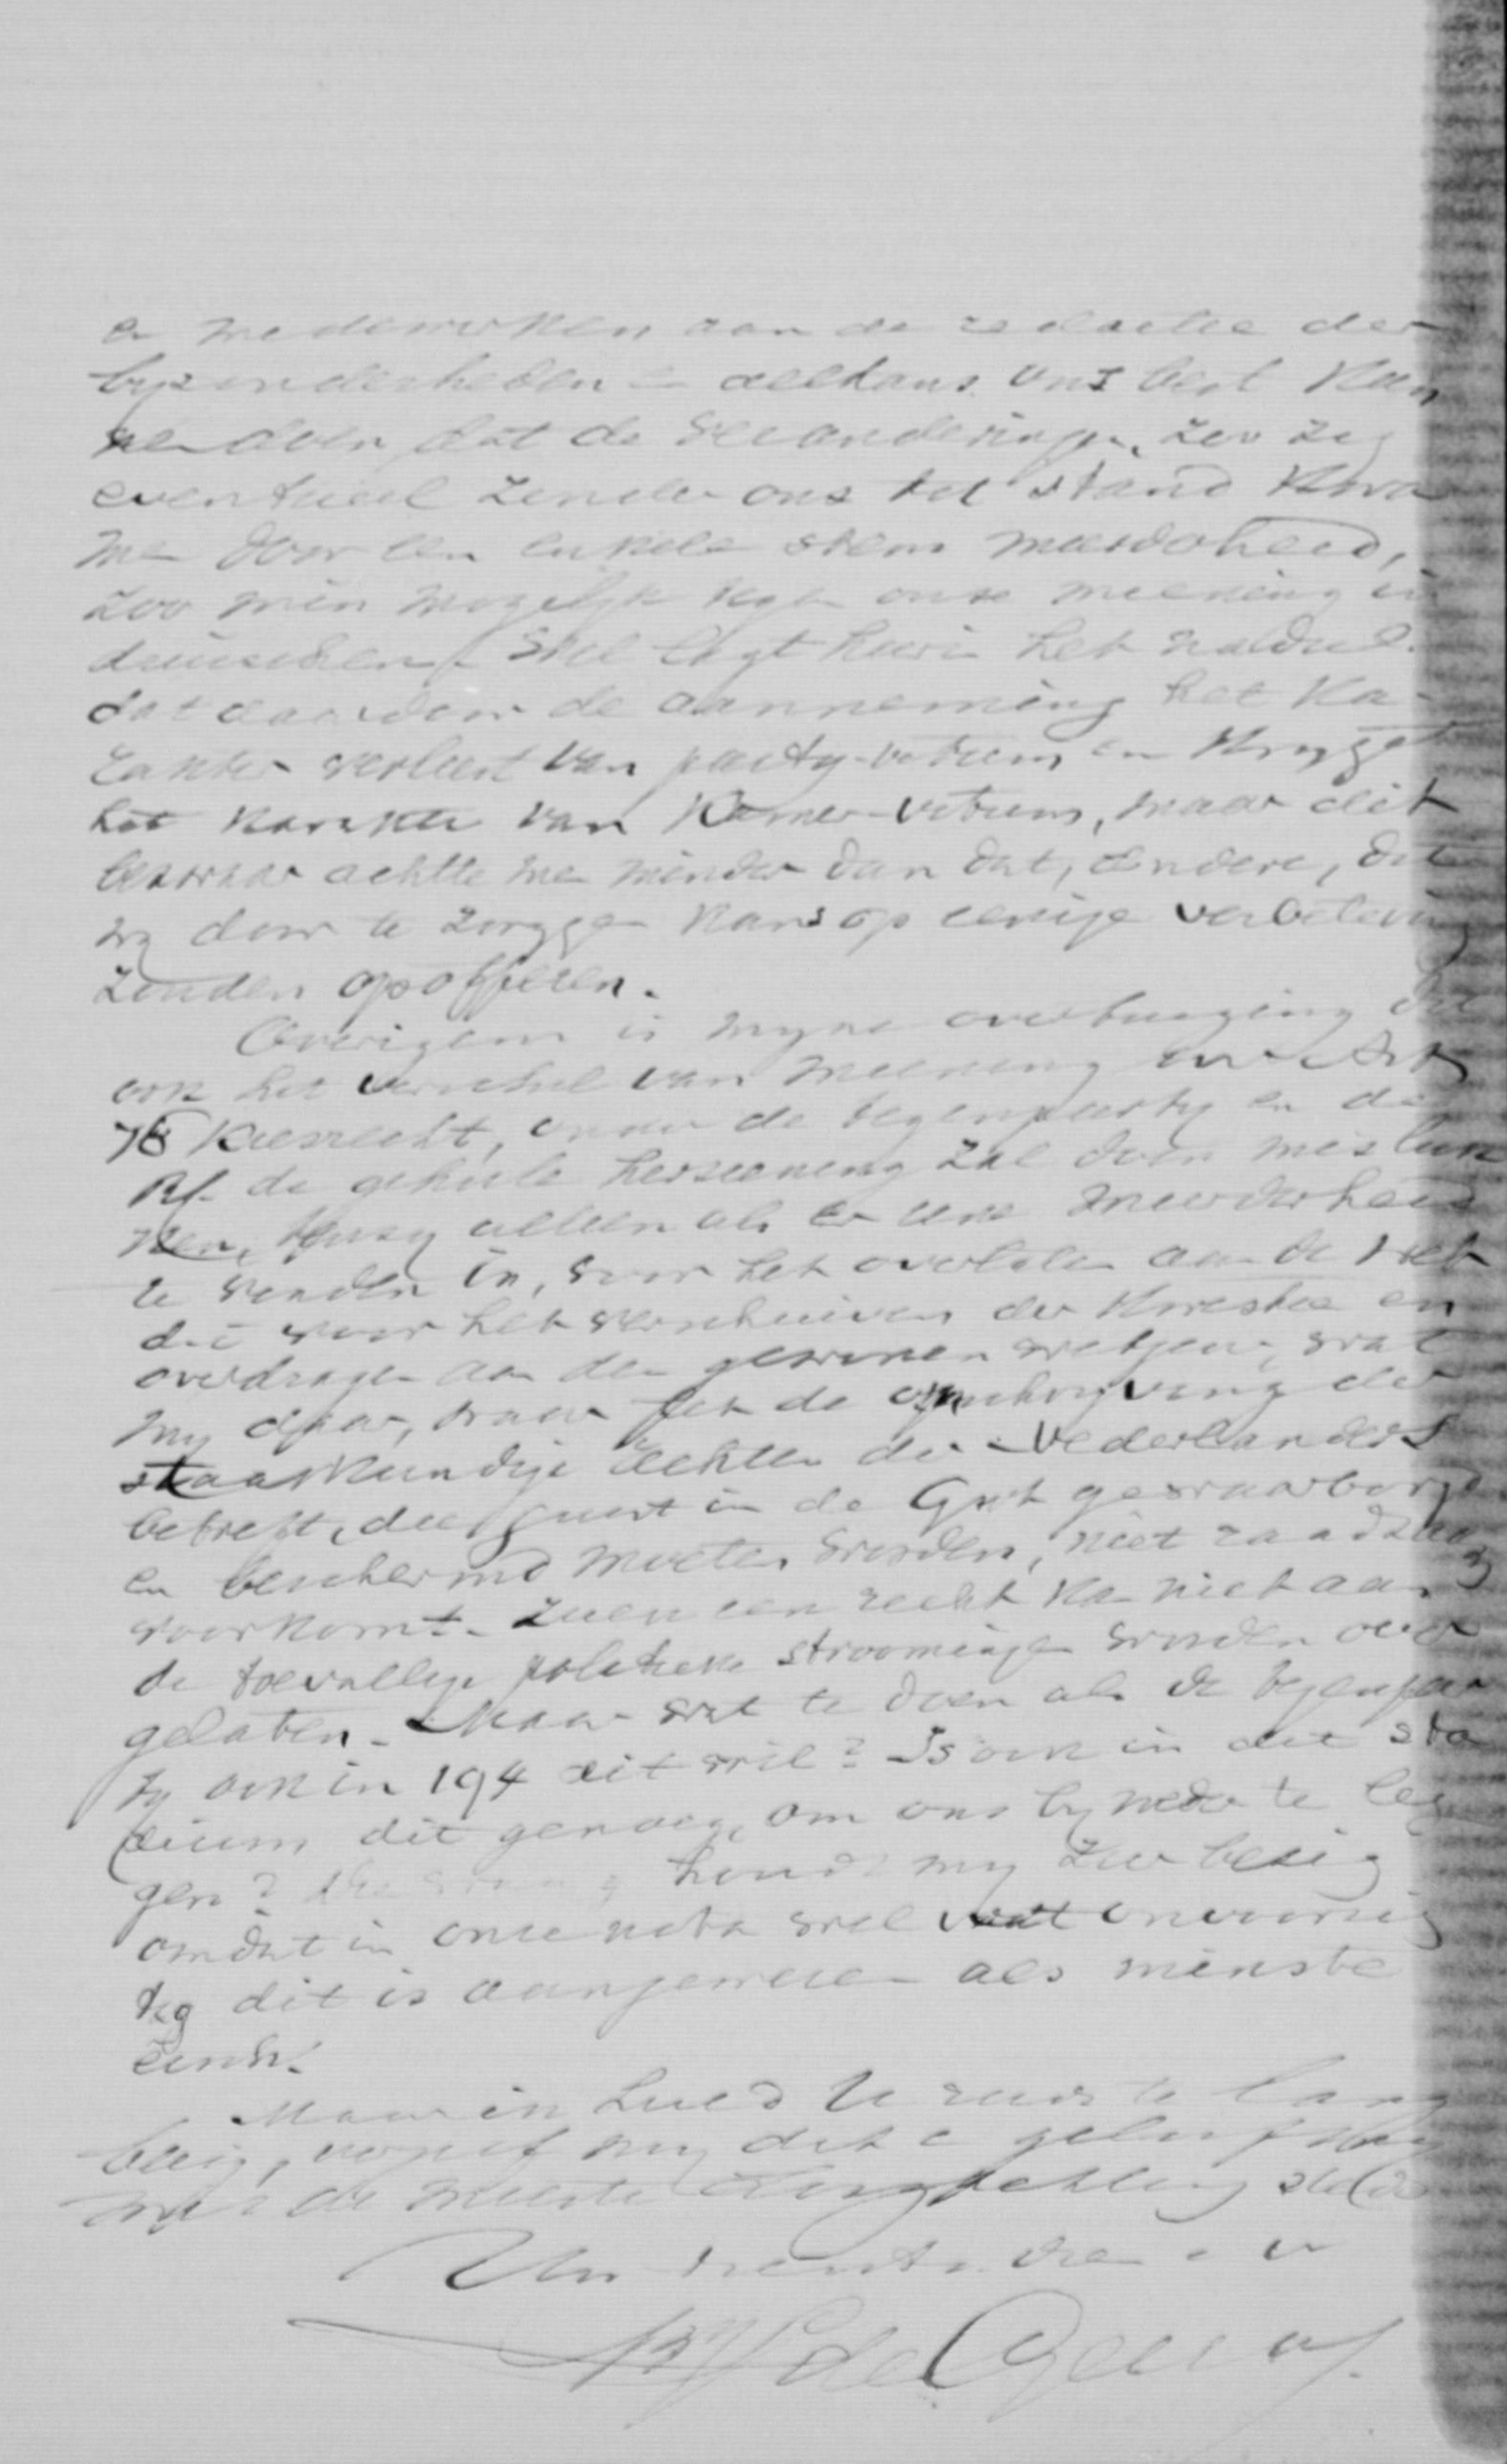 en medewerken aan de redactie der
byzonderheden en althans ons best kun
nen doen, dat de veranderingen, zoo zy
eventueel zonder ons tot stand kwa
men door een enkele stem meerderheid,
zoo min mogelyk tegen onze meening in
druischen. Wel ligt hierin het nadeel
dat daardoor de aanneming het ka-
rakter verliest van party-votum en krygt
het karakter van Kamer-votum, maar dit
bezwaar achtte men minder dan dat, andere, dat
wy door te zwygen kans op eenige verbetering
zouden opofferen.
Overigens is myne overtuiging dat
ook het verschil van meening over Art
76 Kiesrecht, onder de tegenparty en de
Rf. de geheele herziening zal doen misluk
ken, tenzy alleen als er eene meerderheid
te vinden is, voor het overlaten aan de wet
dus voor het verschuiven der kwestie en
overdragen aan den gewonen wetgever, wat
my daar, waar het de omschryving der
staatkundige rechten der Nederlanders
betreft, die juist in de Gwet gewaarborgd
en beschermd moeten worden, niet raadzaam
voorkomt. Zulk een recht kan niet aan
de toevallige politieke stroomingen worden over
gelaten. Maar wat te doen als de tegenpar
ty ook in 194 dit wil? Is ook in dit sta
dium dit genoeg, om ons by neder te leg
gen? Die vraag houdt my zeer bezig
omdat in onze nota wel wat onvoorzig
tig dit is aangewezen als minste
eisch.
Maar ik hield U reeds te lang
bezig, vergeef my dit en geloof my
met de meeste Hoogachting steeds
Uw
de Geer